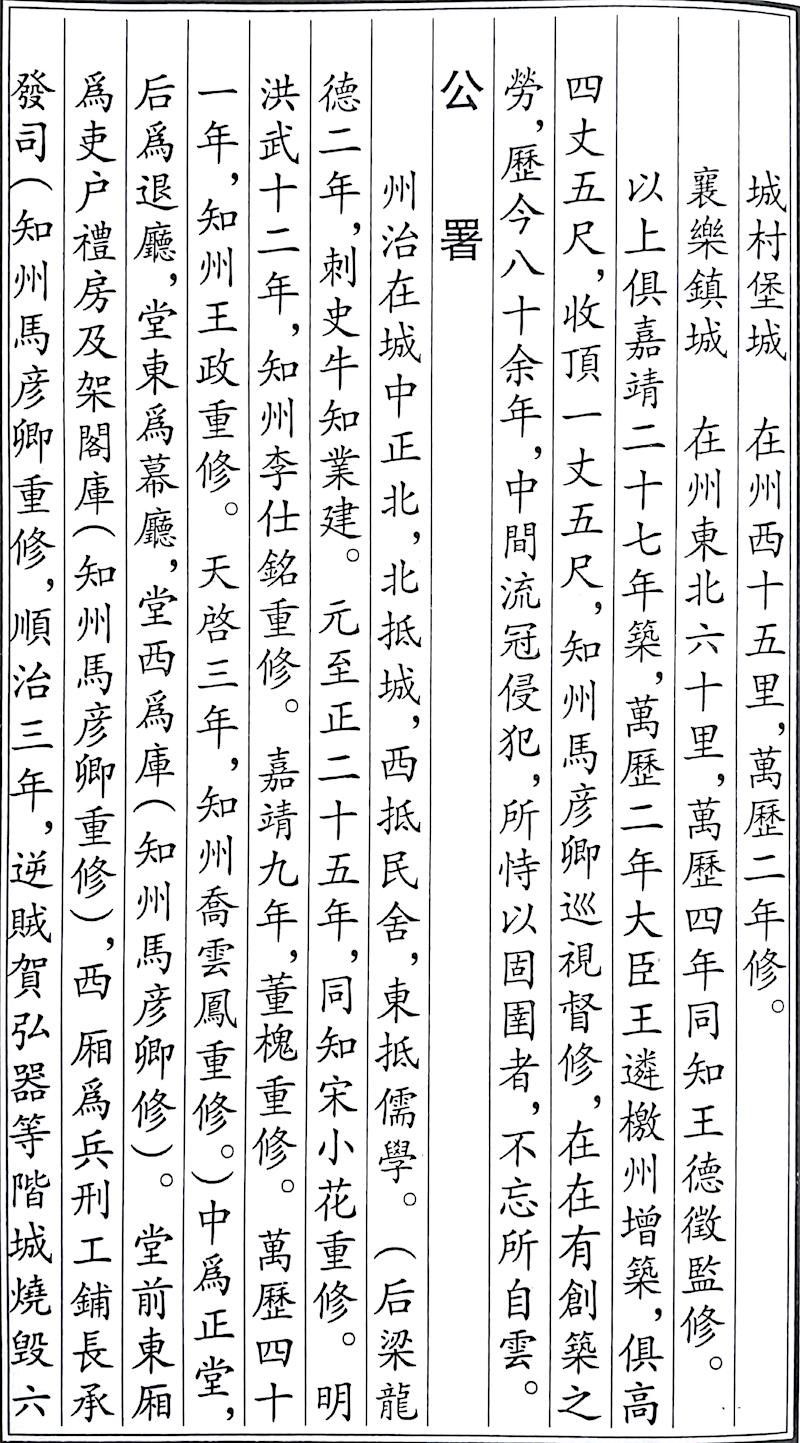 城村堡城　在州西十五里，萬歷二年修。
襄樂鎮城　在州東北六十里，萬歷四年同知王德徵監修。
以上俱嘉靖二十七年築，萬歷二年大臣王遴檄州增築，俱高
四丈五尺，收頂一丈五尺，知州馬彦卿巡視督修，在在有創築之
勞，歷今八十余年，中間流冠侵犯，所恃以固圉者，不忘所自雲。
公署
州治在城中正北，北抵城，西抵民舍，東抵儒學。（后梁龍
德二年，刺史牛知業建。元至正二十五年，同知宋小花重修。明
洪武十二年，知州李仕銘重修。嘉靖九年，董槐重修。萬歷四十
一年，知州王政重修。天啓三年，知州喬雲鳳重修。）中爲正堂，
后爲退廳，堂東爲幕廳，堂西爲庫（知州馬彦卿修）。堂前東厢
爲吏户禮房及架閣庫（知州馬彦卿重修），西厢爲兵刑工鋪長承
發司（知州馬彦卿重修，順治三年，逆賊賀弘器等階城燒毁六